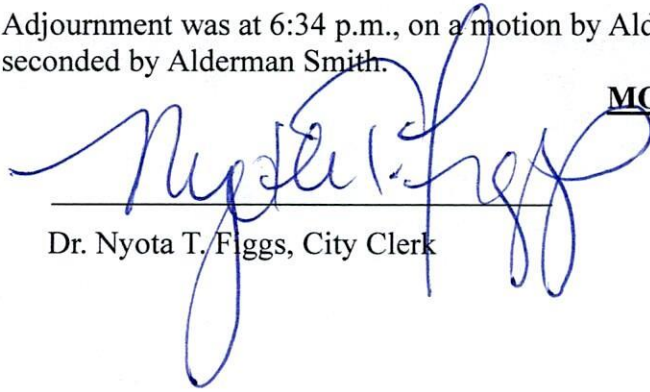 Adjournment was at 6:34 p.m., on a motion by Ald
seconded by Alderman Smith.
MO
Nyota T. Figgs
Dr. Nyota T. Figgs, City Clerk